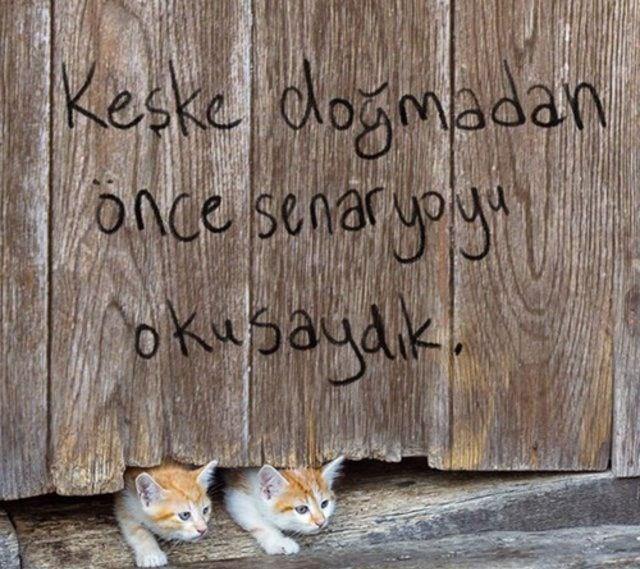 Keşke doğmadan
önce senaryoyu
okusaydık.